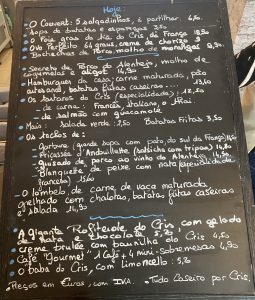 Hoje
O Couvert: 5 salgadinhos, a partilhar 6,50.
Sopa de batatas e espargos 3,50
O Foie gras da Tia do Cris, da França
Ovo Perfeito 64 graus, creme de chorizo
Bochechas de Porco, molho de morangos
Secreto de Porco do Alentejo, molho de
cogumelos e aligot 14,90
Hambúrguer da casa (carne maturada, pão
artesanal, batatas fritas caseiras...) 13,50
Os Tartaros do Cris (especialidade):
- de carne: Francês, Italiano, o Thai.
- de salmão com guacamole
Mais: Salada verde 2,50 Batatas Fritas 3,50
Os tachos de:
- Garbure (grande sopa, com pato, do sul da França)
- Fricassés d'Andouillette (salsicha com tripas) 14,80
- guisado de porco ao vinho do Alentejo 14,50
- Blanquette de peixe com nata (especialidade
francesa) 15,60
O lombelo de carne de vaca maturada
grelhado com chalotas, batatas fritas caseiras
e salada 14,90
A gigante Profiterole do Cris, com gelado
de nata e chocolate 5,20
creme brulée com baunilha do Cris 4,50
Café "Gourmet" 1 Café + 4 mini-sobremesas 4,90
O baba do Cris, com limoncello: 5,20
Preços em Euros, com IVA. Tudo Caseiro por Cris.